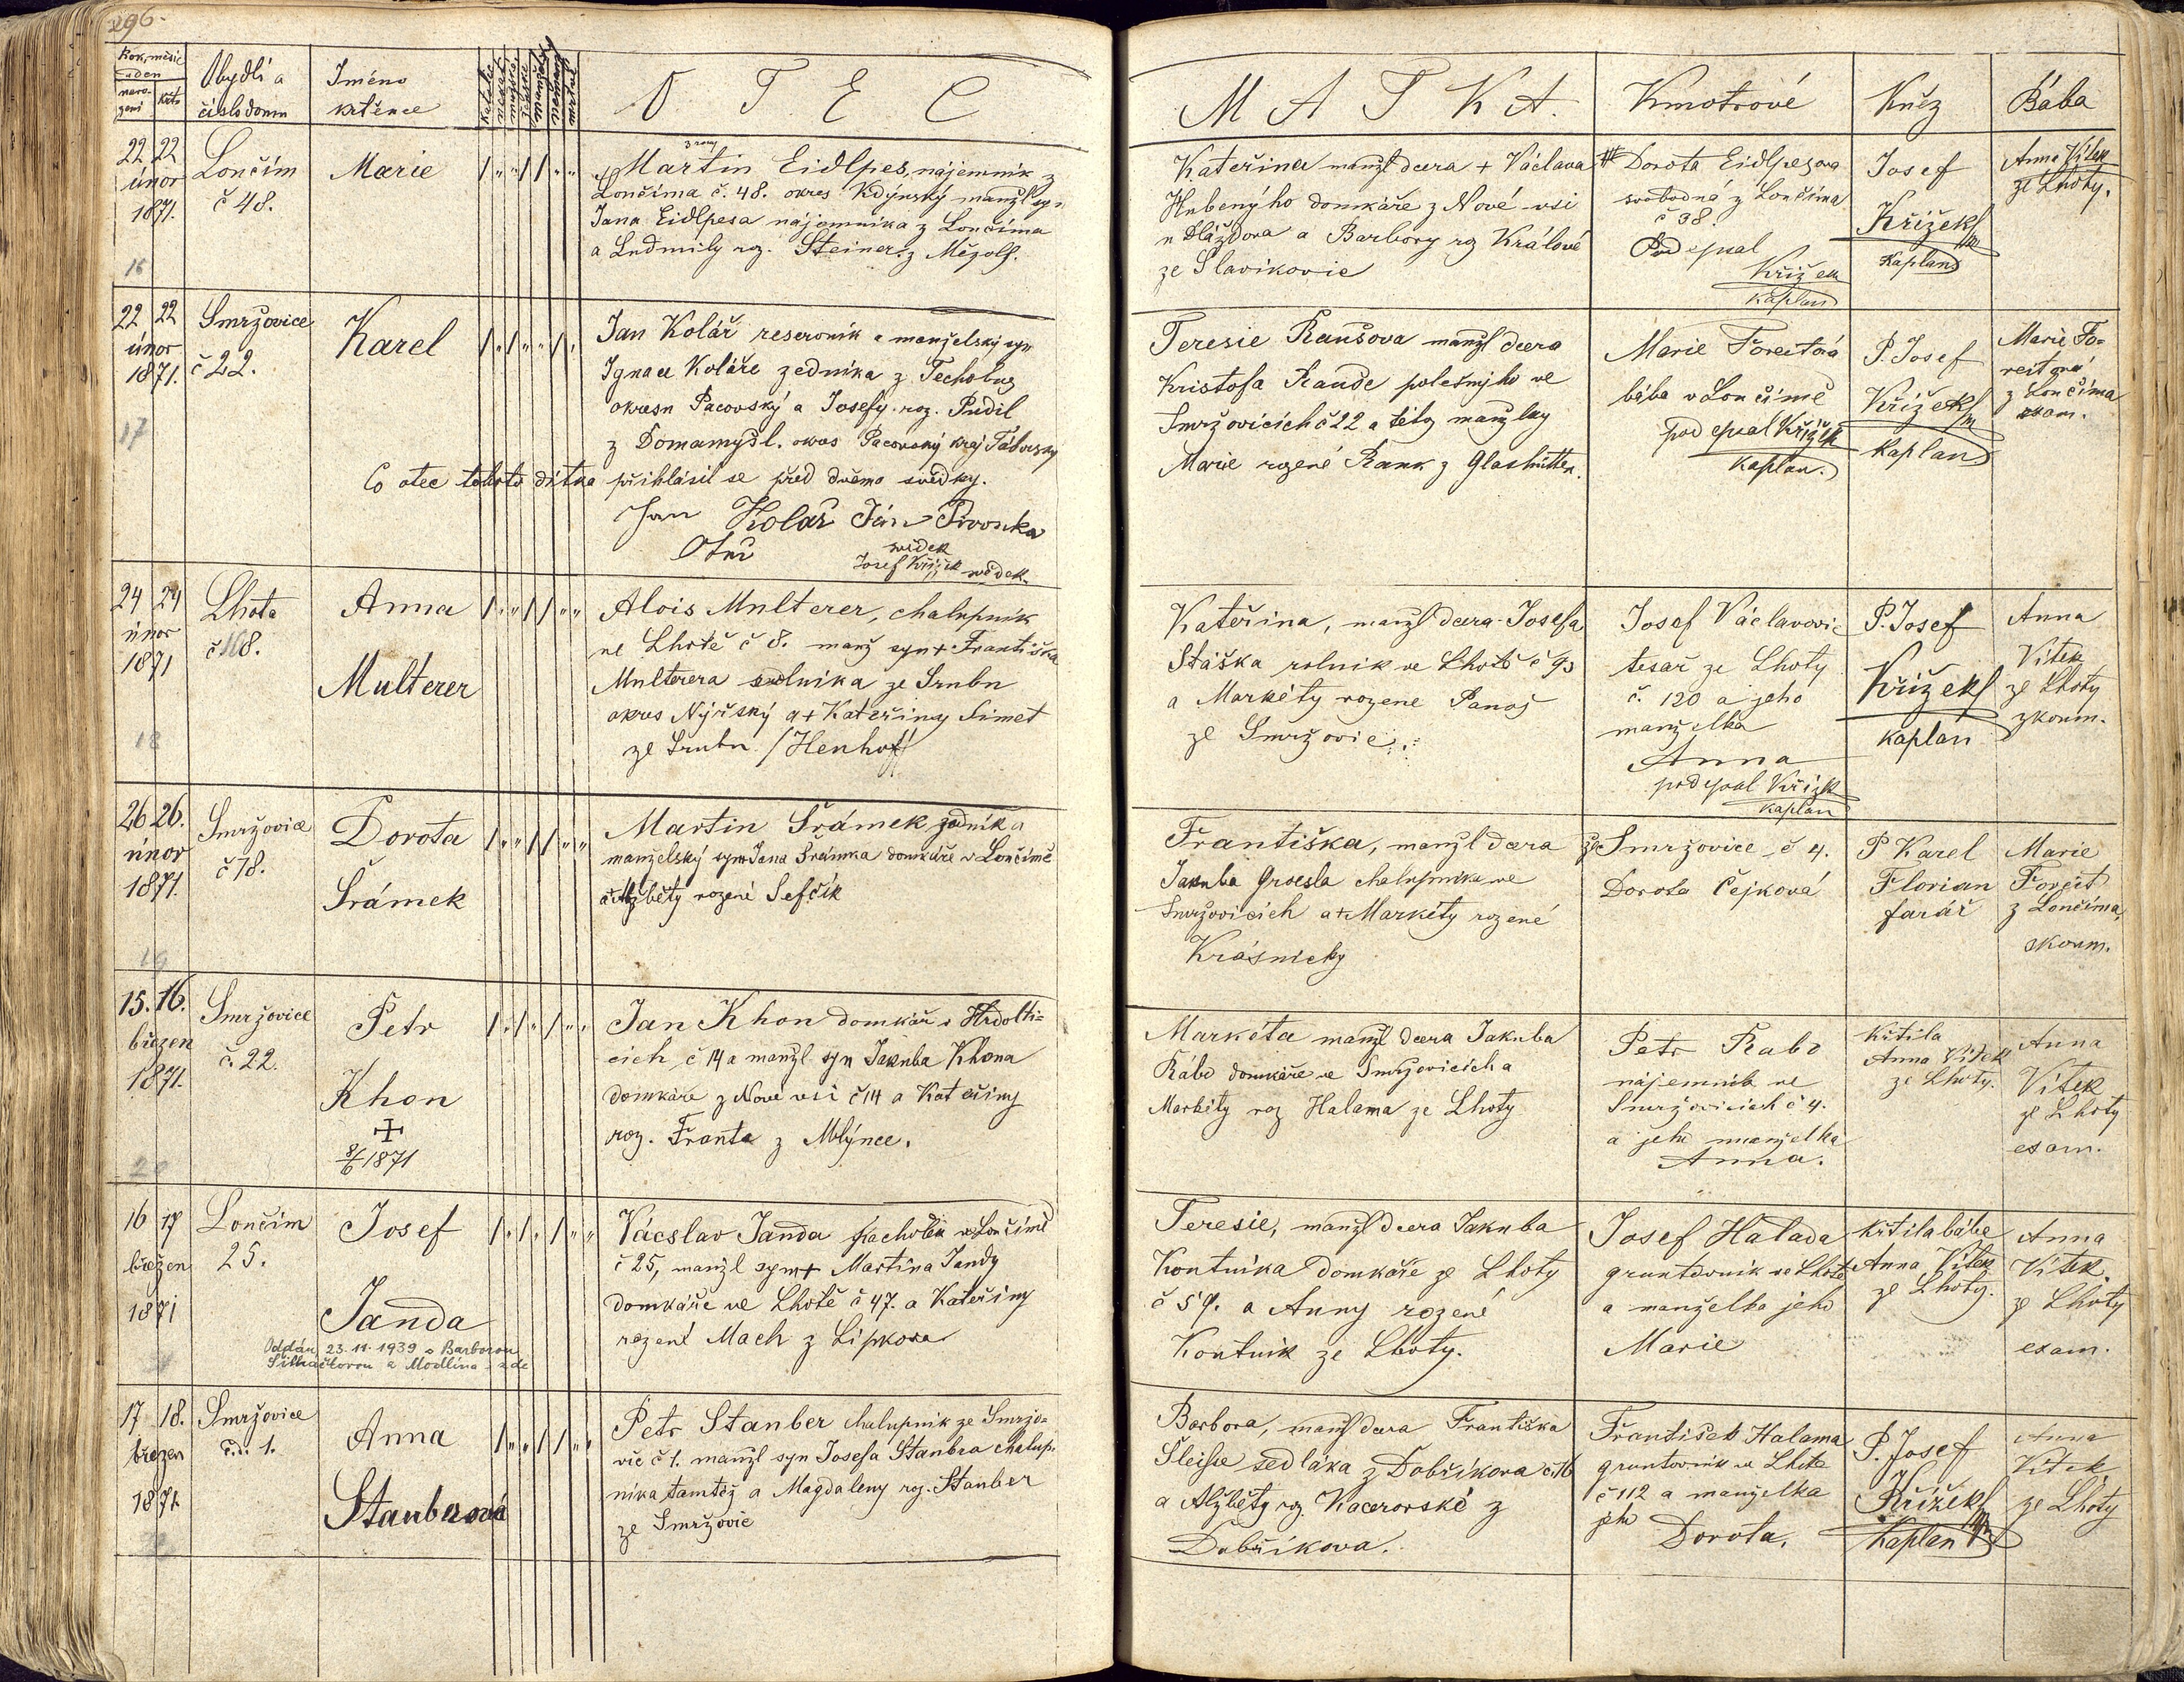 296.
Rok, měsíc
a den
naro-
zení
křtu
Obydlí a
číslo domu
Jméno
křtěnce
OTEC
MATKA.
Kmotrové
Kněz
Bába
22 22
únor
1871.
16
Lončím
č 48.
Marie
Martin Eidlpes, nájemník z
Lončíma č. 48. okres Kdýnský manžl syn
Jana Eidlpesa nájemníka z Lončíma
a Ludmily rz. Steiner z Mězolf.
Kateřina manžl dcera + Václava
Hubenýho domkáře z Nové vsi
u Dláždova a Barbory rz Králové
ze Slavikovic
Dorota Eidlpesova
svobodná z Lončíma
č 38.
Podepsal
Křížek
kaplan
Josef
Křížek
Kaplan
Anna Vítek
ze Lhoty.
22 22
únor
1871.
17
Smržovice
č 22.
Karel
Jan Kolář reservník a manželský syn
Ignace Koláře zedníka z Techobuz
okresu Pacovský a Josefy roz. Pudil
z Domamyšl. okres Pacovský kraj Táborský
Co otec tohoto dítka přihlásil se před dvěma svědky.
Jan Kolář Ján Pivonka
Otec svědek
Josef Křížek svědek.
Teresie Raušova manžl dcera
Kristofa Rauše polesnýho ve
Smržovicích č 22 a této manželky
Marie rozené Rank z Glashütten.
Marie Foreitová
bába v Lončimě
podepsal Křížek
kaplan.
P. Josef
Křížek
Kaplan
Marie Fo-
reitová
z Lončíma
exam.
24 24
únor
1871
18
Lhota
č 8.
Anna
Multerer
Alois Multerer, chalupník
ve Lhotě č 8. manž syn + Františka
Multerera sedlníka ze Srubu
okres Nýrský a + Kateřiny Simet
ze Srubu /Henhof/
Kateřina, manžl dcera Josefa
Stáška rolník ve Lhotě č 93
a Markéty rozene Panoš
ze Smržovic.
Josef Václavovic
tesař ze Lhoty
č. 120 a jeho
manželka
Anna
podepsal Křížek
kaplan
P. Josef
Křížek
kaplan
Anna
Vítek
ze Lhoty
zkoum.
26 26.
únor
1871.
19
Smržovice
č 78.
Dorota
Šrámek
Martin Šrámek zedník a
manželský syn Jana Šrámka domkáře v Lončimě
a Alžběty rozené Sefčík
Františka, manžl dcera
Jakuba Groesla chalupníka ve
Smržovicích a + Markéty rozené
Krásnický
ze Smržovice č 4.
Dorota Čejková
P Karel
Florian
farář
Marie
Foreit
z Lončíma,
zkoum.
15. 16.
březen
1871.
20
Smržovice
č. 22.
Petr
Khon
8/6 1871
Jan Khon domkář v Hrdolti-
cich č 14 a manžl syn Jakuba Khona
domkáře z Nové vsi č 14 a Kateřiny
roz. Franta z Mlýnce.
Markéta manžl dcera Jakuba
Rábo domkáře ve Smržovicích a
Markéty roz Halama ze Lhoty
Petr Rabo
nájemník ve
Smržovicich č 4.
a jeho manželka
Anna.
křtila
Anna Vítek
ze Lhoty.
Anna
Vítek
ze Lhoty
exam.
16 17
březen
1871
Lončím
25.
Josef
Janda
Oddán 23.11.1939 s Barborou
Václav Janda pacholek v Lončimě
č 25, manžl syn + Martina Jandy
domkáře ve Lhotě č 47. a Kateřiny
rozené Mach z Lipkova
Teresie, manžl dcera Jakuba
Kontnika domkáře ze Lhoty
č 59. a Anny rozené
Kontnik ze Lhoty.
Josef Halada
gruntovnik ve Lhotě
a manželka jeho
Marie
křtila bába
Anna Vítek
ze Lhoty.
Anna
Vítek
ze Lhoty
exam.
17 18.
březen
1871.
Smržovice
č.d. 1.
Anna
Stauberová
Petr Stauber chalupník ze Smržo-
vic č 1. manžl syn Josefa Staubra chalup-
níka tamtéž a Magdaleny rz. Stauber
ze Smržovic
Barbora, manžl dcera Františka
Šleisse sedláka z Dobříkova č 16
a Alžběty rz. Kacerovské z
Dobříkova.
František Halama
gruntovník ve Lhotě
č 112 a manželka
jeho Dorota.
P. Josef
Křížek
Kaplan
Anna
Vítek
ze Lhoty